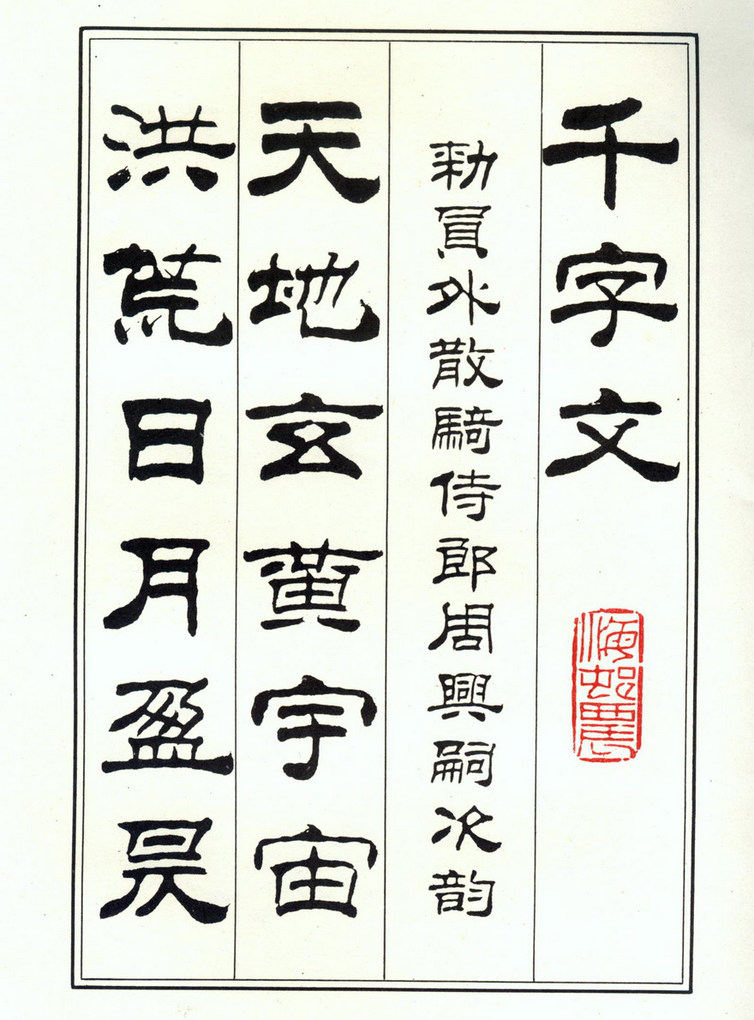 千字文
勑員外散騎侍郎周興嗣次韵
天地玄黃宇宙
洪荒日月盈昃